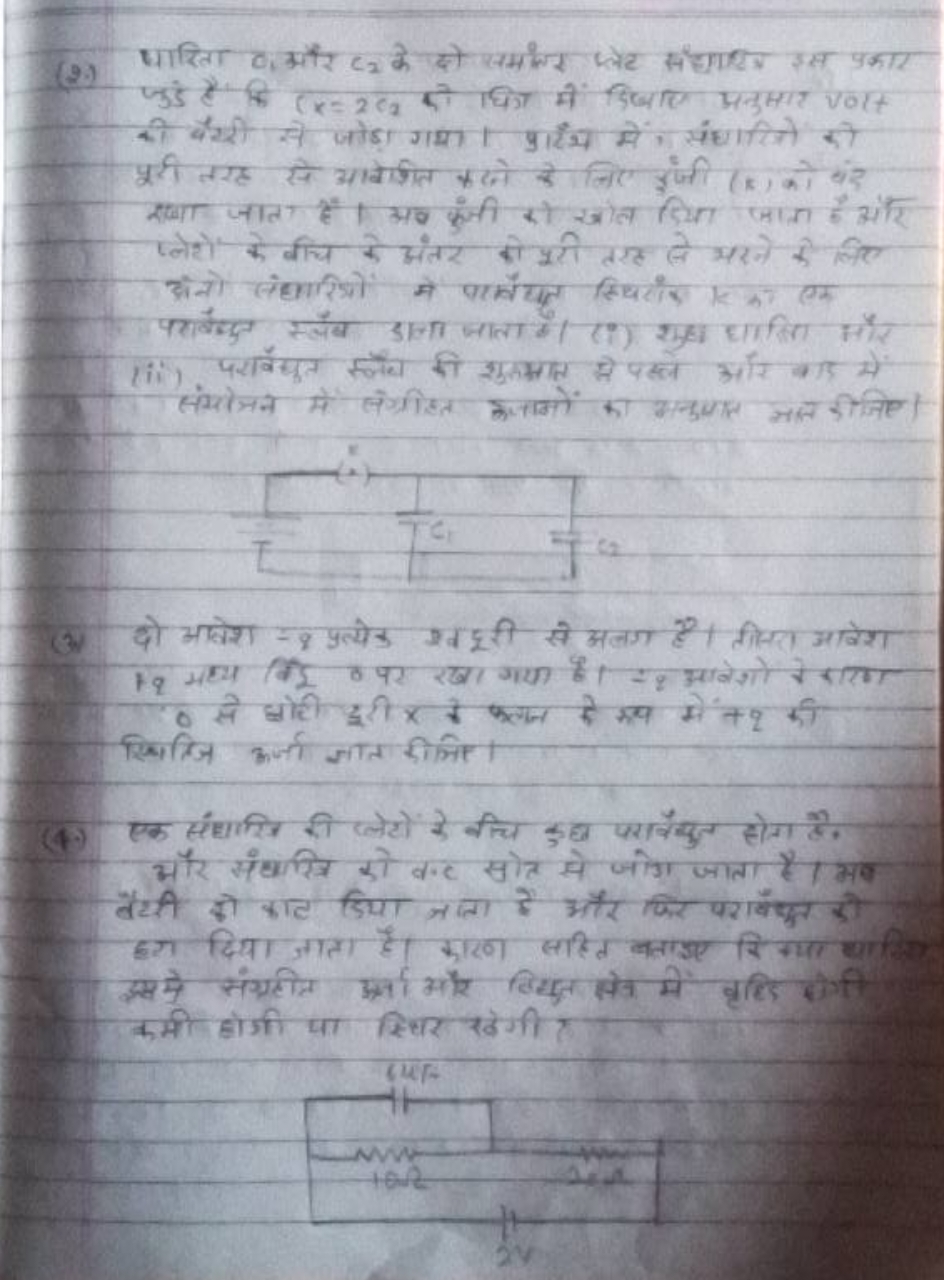 (2.) धारिता C1 और C2 के दो समांतर प्लेट संधारित्र इस प्रकार
जुड़े हैं कि C = 2C2 को चित्र में दिखाए अनुसार Volt
की बैटरी से जोड़ा गया। प्रारंभ में, संधारित्रों को
पूरी तरह से आवेशित करने के लिए कुंजी (K) को बंद
रखा जाता है। अब कुंजी को खोल दिया जाता है और
प्लेटों के बीच के अंतर को पूरी तरह से भरने के लिए
दोनों संधारित्रों में परावैद्युत स्थिरांक K का एक
परावैद्युत स्लैब डाला जाता है। (i) धारिता और
(ii) परावैद्युत स्लैब की शुरुआत से पहले और बाद में
संयोजन में संग्रहित ऊर्जाओं का अनुपात ज्ञात कीजिए।
K
C1
C2
(3) दो आवेश -q प्रत्येक दूरी से अलग है। तीसरा आवेश
+q मध्य बिंदु O पर रखा गया है। -q आवेशों के कारण
O से छोटी दूरी x के फलन के रूप में +q की
स्थितिज ऊर्जा ज्ञात कीजिए।
(4.) एक संधारित्र की प्लेटों के बीच कुछ परावैद्युत होता है.
और संधारित्र को d.c स्रोत से जोड़ा जाता है। अब
बैटरी को काट दिया जाता है और फिर परावैद्युत को
हटा दिया जाता है। कारण सहित बताइए कि क्या धारिता
इसमें संग्रहीत ऊर्जा और विद्युत क्षेत्र में वृद्धि होगी
कमी होगी या स्थिर रहेगी?
10Ω
2V